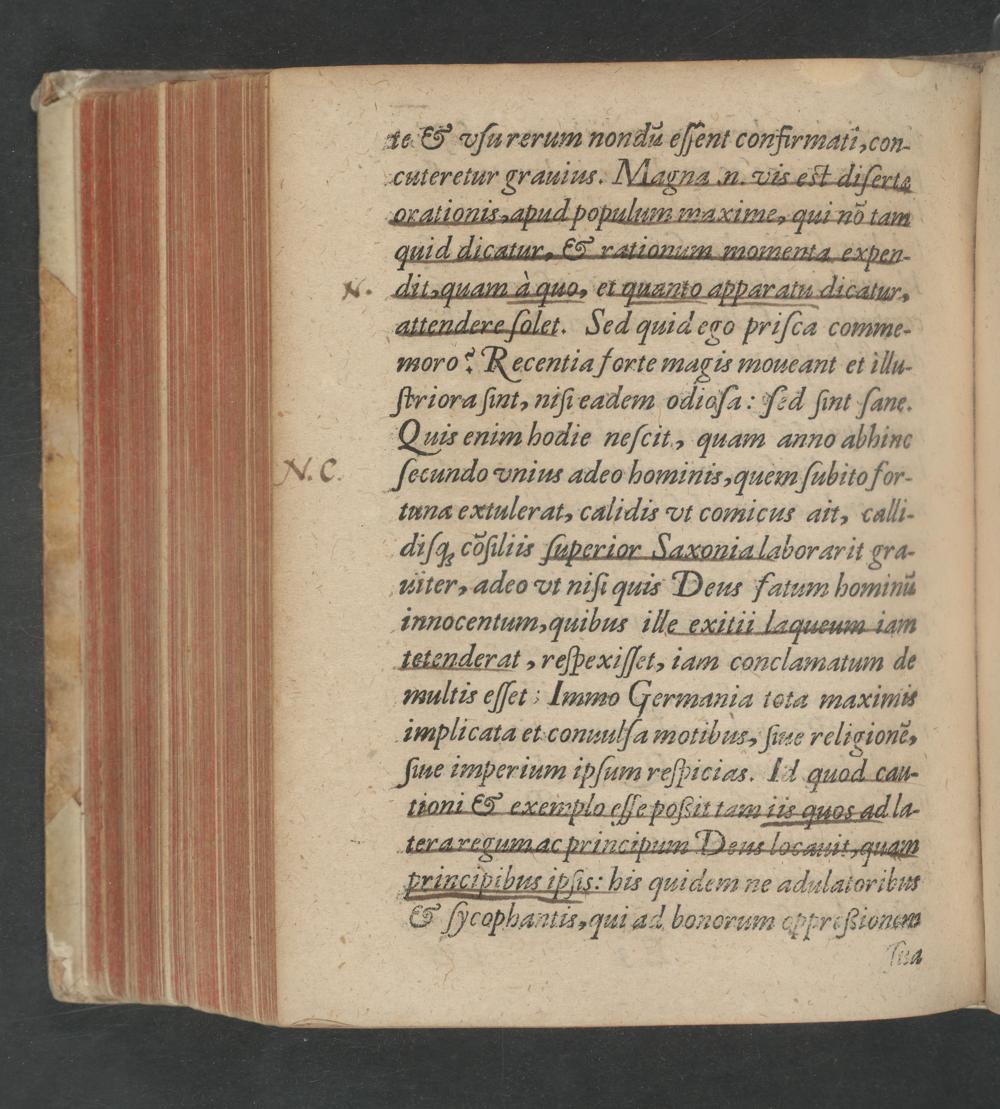 te & vſu rerum nondū eſſent confirmati, con-
cuteretur grauius. Magna .n. vis est diſertæ
orationis, apud populum maxime, qui nō tam
quid dicatur, & rationum momenta expen-
N. dit, quam à quo, et quanto apparatu dicatur,
attendere ſolet. Sed quid ego priſca comme-
moro? Recentia forte magis moueant et illu-
ſtriora ſint, niſi eadem odioſa: ſed ſint ſane.
Quis enim hodie neſcit, quam anno abhinc
N.C. ſecundo vnius adeo hominis, quem ſubito for-
tuna extulerat, calidis vt comicus ait, calli-
diſq; cōſiliis ſuperior Saxonia laborarit gra-
uiter, adeo vt niſi quis Deus fatum hominū
innocentum, quibus ille exitii laqueum iam
tetenderat, reſpexiſſet, iam conclamatum de
multis eſſet: Immo Germania tota maximis
implicata et conuulſa motibus, ſiue religionē,
ſiue imperium ipſum reſpicias. Id quod cau-
tioni & exemplo eſſe poßit tam iis quos ad la-
tera regum ac principum Deus locauit, quam
principibus ipſis: his quidem ne adulatoribus
& ſycophantis, qui ad bonorum oppreßionem